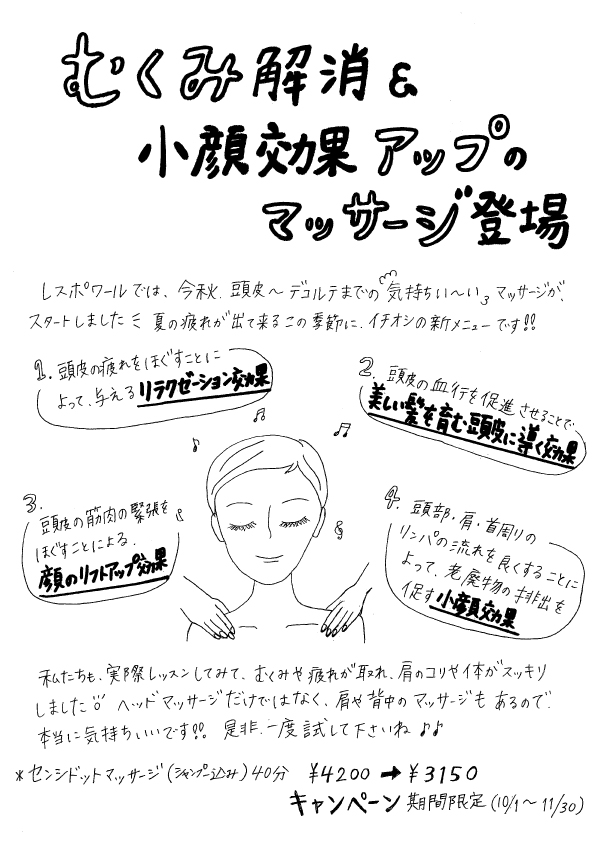 むくみ解消&
小顔効果アップの
マッサージ登場
レスポワールでは、今秋、頭皮〜デコルテまでの気持ちい〜いマッサージが、
スタートしました 夏の疲れが出て来るこの季節に、イチオシの新メニューです!!
1. 頭皮の疲れをほぐすことに
よって、与えるリラクゼーション効果
2. 頭皮の血行を促進させることで
美しい髪を育む頭皮に導く効果
3.
頭皮の筋肉の緊張を
ほぐすことによる、
顔のリフトアップ効果
4. 頭部・肩・首周りの
リンパの流れを良くすることに
よって、老廃物の排出を
促す小顔効果
私たちも、実際レッスンしてみて、むくみや疲れが取れ、肩のコリや体がスッキリ
しました ヘッドマッサージだけではなく、肩や背中のマッサージもあるので、
本当に気持ちいいです!! 是非、一度試して下さいね♪♪
*センシドットマッサージ(シャンプー込み)40分 ¥4200→¥3150
キャンペーン期間限定(10/1〜11/30)